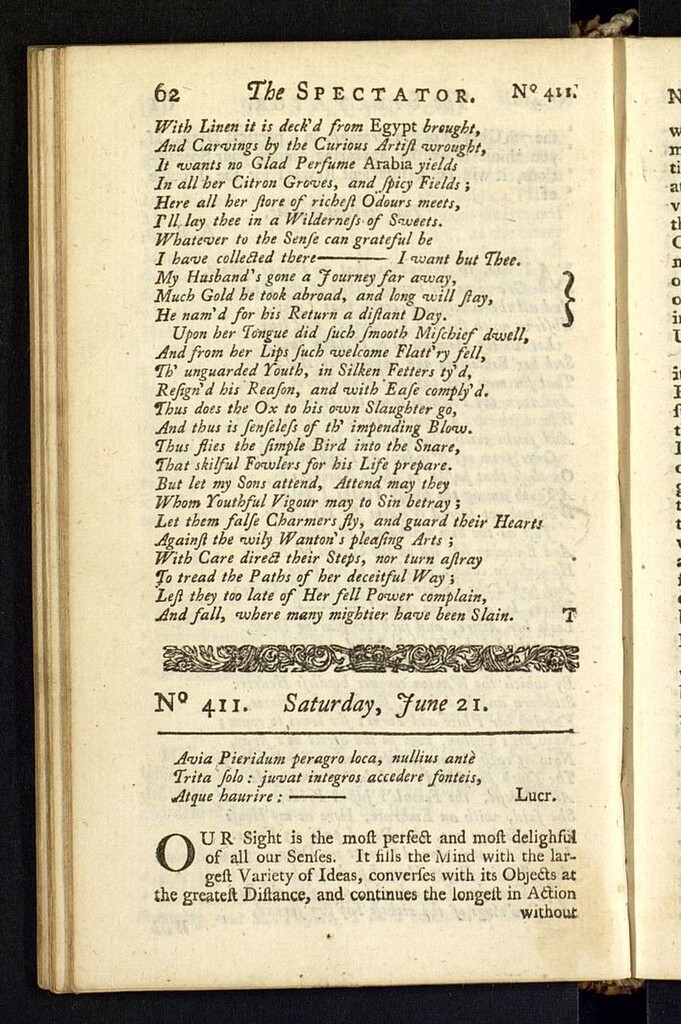 62 The SPECTATOR. Nº 411.
With Linen it is deck'd from Egypt brought,
And Carvings by the Curious Artiſt wrought,
It wants no Glad Perfume Arabia yields
In all her Citron Groves, and ſpicy Fields;
Here all her ſtore of richeſt Odours meets,
I'll lay thee in a Wilderneſs of Sweets.
Whatever to the Senſe can grateful be
I have collected there——— I want but Thee.
My Husband's gone a Journey far away,
Much Gold he took abroad, and long will ſtay,
He nam'd for his Return a diſtant Day.
Upon her Tongue did ſuch ſmooth Miſchief dwell,
And from her Lips ſuch welcome Flatt'ry fell,
Th' unguarded Youth, in Silken Fetters ty'd,
Reſign'd his Reaſon, and with Eaſe comply'd.
Thus does the Ox to his own Slaughter go,
And thus is ſenſeleſs of th' impending Blow.
Thus flies the ſimple Bird into the Snare,
That skilful Fowlers for his Life prepare.
But let my Sons attend, Attend may they
Whom Youthful Vigour may to Sin betray;
Let them falſe Charmers fly, and guard their Hearts
Againſt the wily Wanton's pleaſing Arts;
With Care direct their Steps, nor turn aſtray
To tread the Paths of her deceitful Way;
Leſt they too late of Her fell Power complain,
And fall, where many mightier have been Slain. T
Nº 411. Saturday, June 21.
Avia Pieridum peragro loca, nullius antè
Trita ſolo: juvat integros accedere fonteis,
Atque haurire: ——— Lucr.
OUR Sight is the moſt perfect and moſt delighful
of all our Senſes. It fills the Mind with the lar-
geſt Variety of Ideas, converſes with its Objects at
the greateſt Diſtance, and continues the longeſt in Action
without